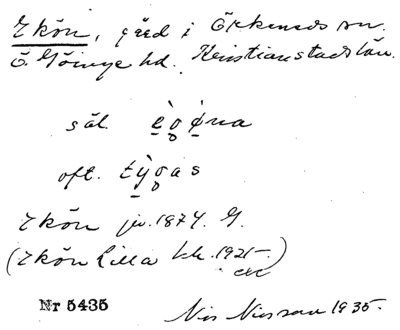 Ekön, gård i Örkeneds sn.
Ö. Göinge hd. Kristianstads län.
säl.
oft.
Ekön jb. 1874. G.
(Ekön Lilla kk. 1925-)
Nr 5435
Nils Nilsson 1935.